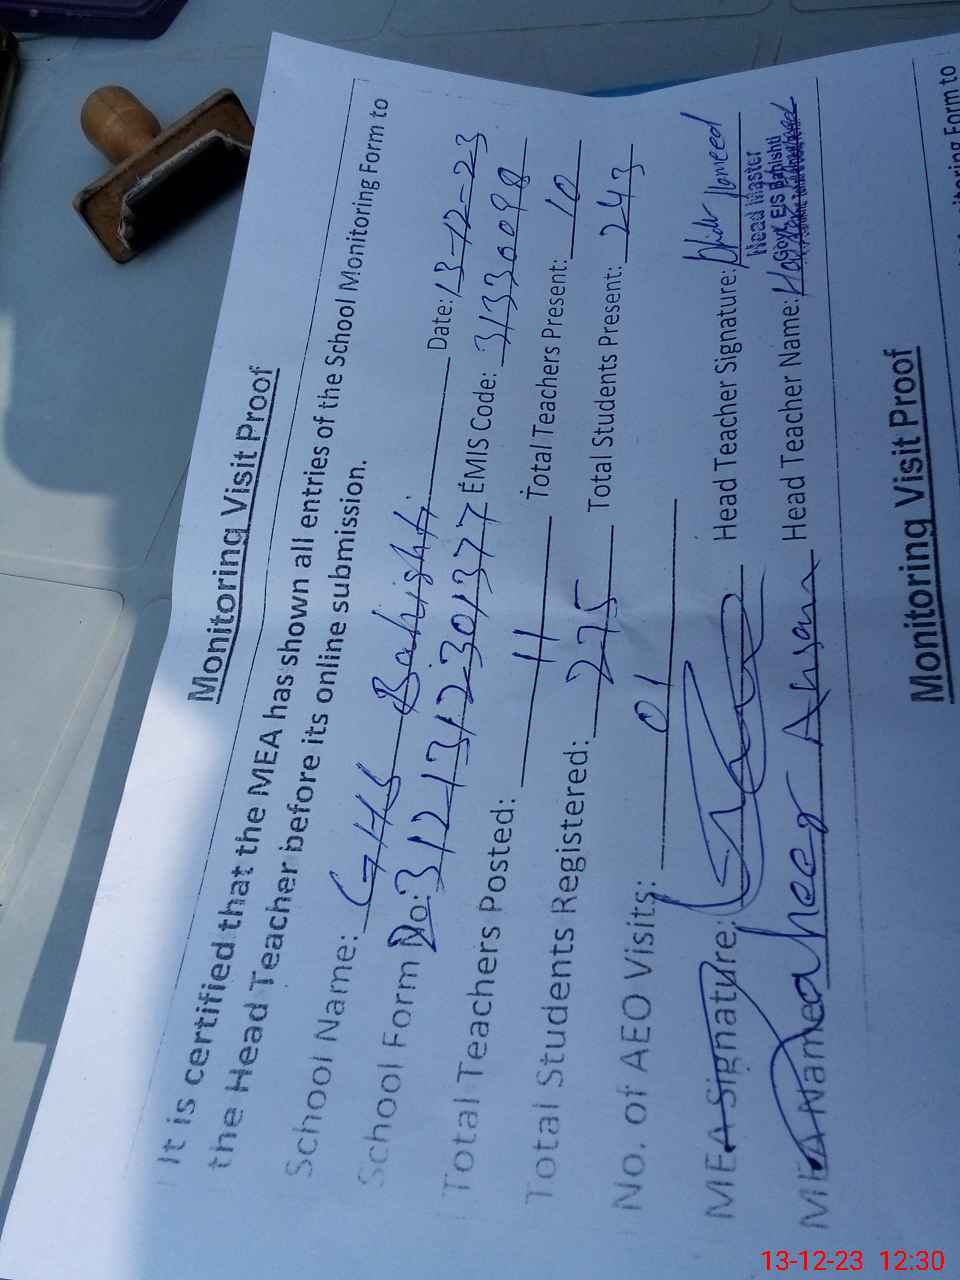 Monitoring Visit Proof
It is certified that the MEA has shown all entries of the School Monitoring Form to
the Head Teacher before its online submission.
School Name: GHS Bahishti Date: 13-12-23
School Form No: 3121312301377 EMIS Code: 31330098
Total Teachers Posted: 11 Total Teachers Present: 10
Total Students Registered: 275 Total Students Present: 243
No. of AEO Visits: 01
MEA Signature: Head Teacher Signature:
Head Master
Govt. E/S Bahishti
MEA Name: Ahsan Head Teacher Name:
Monitoring Visit Proof
13-12-23 12:30